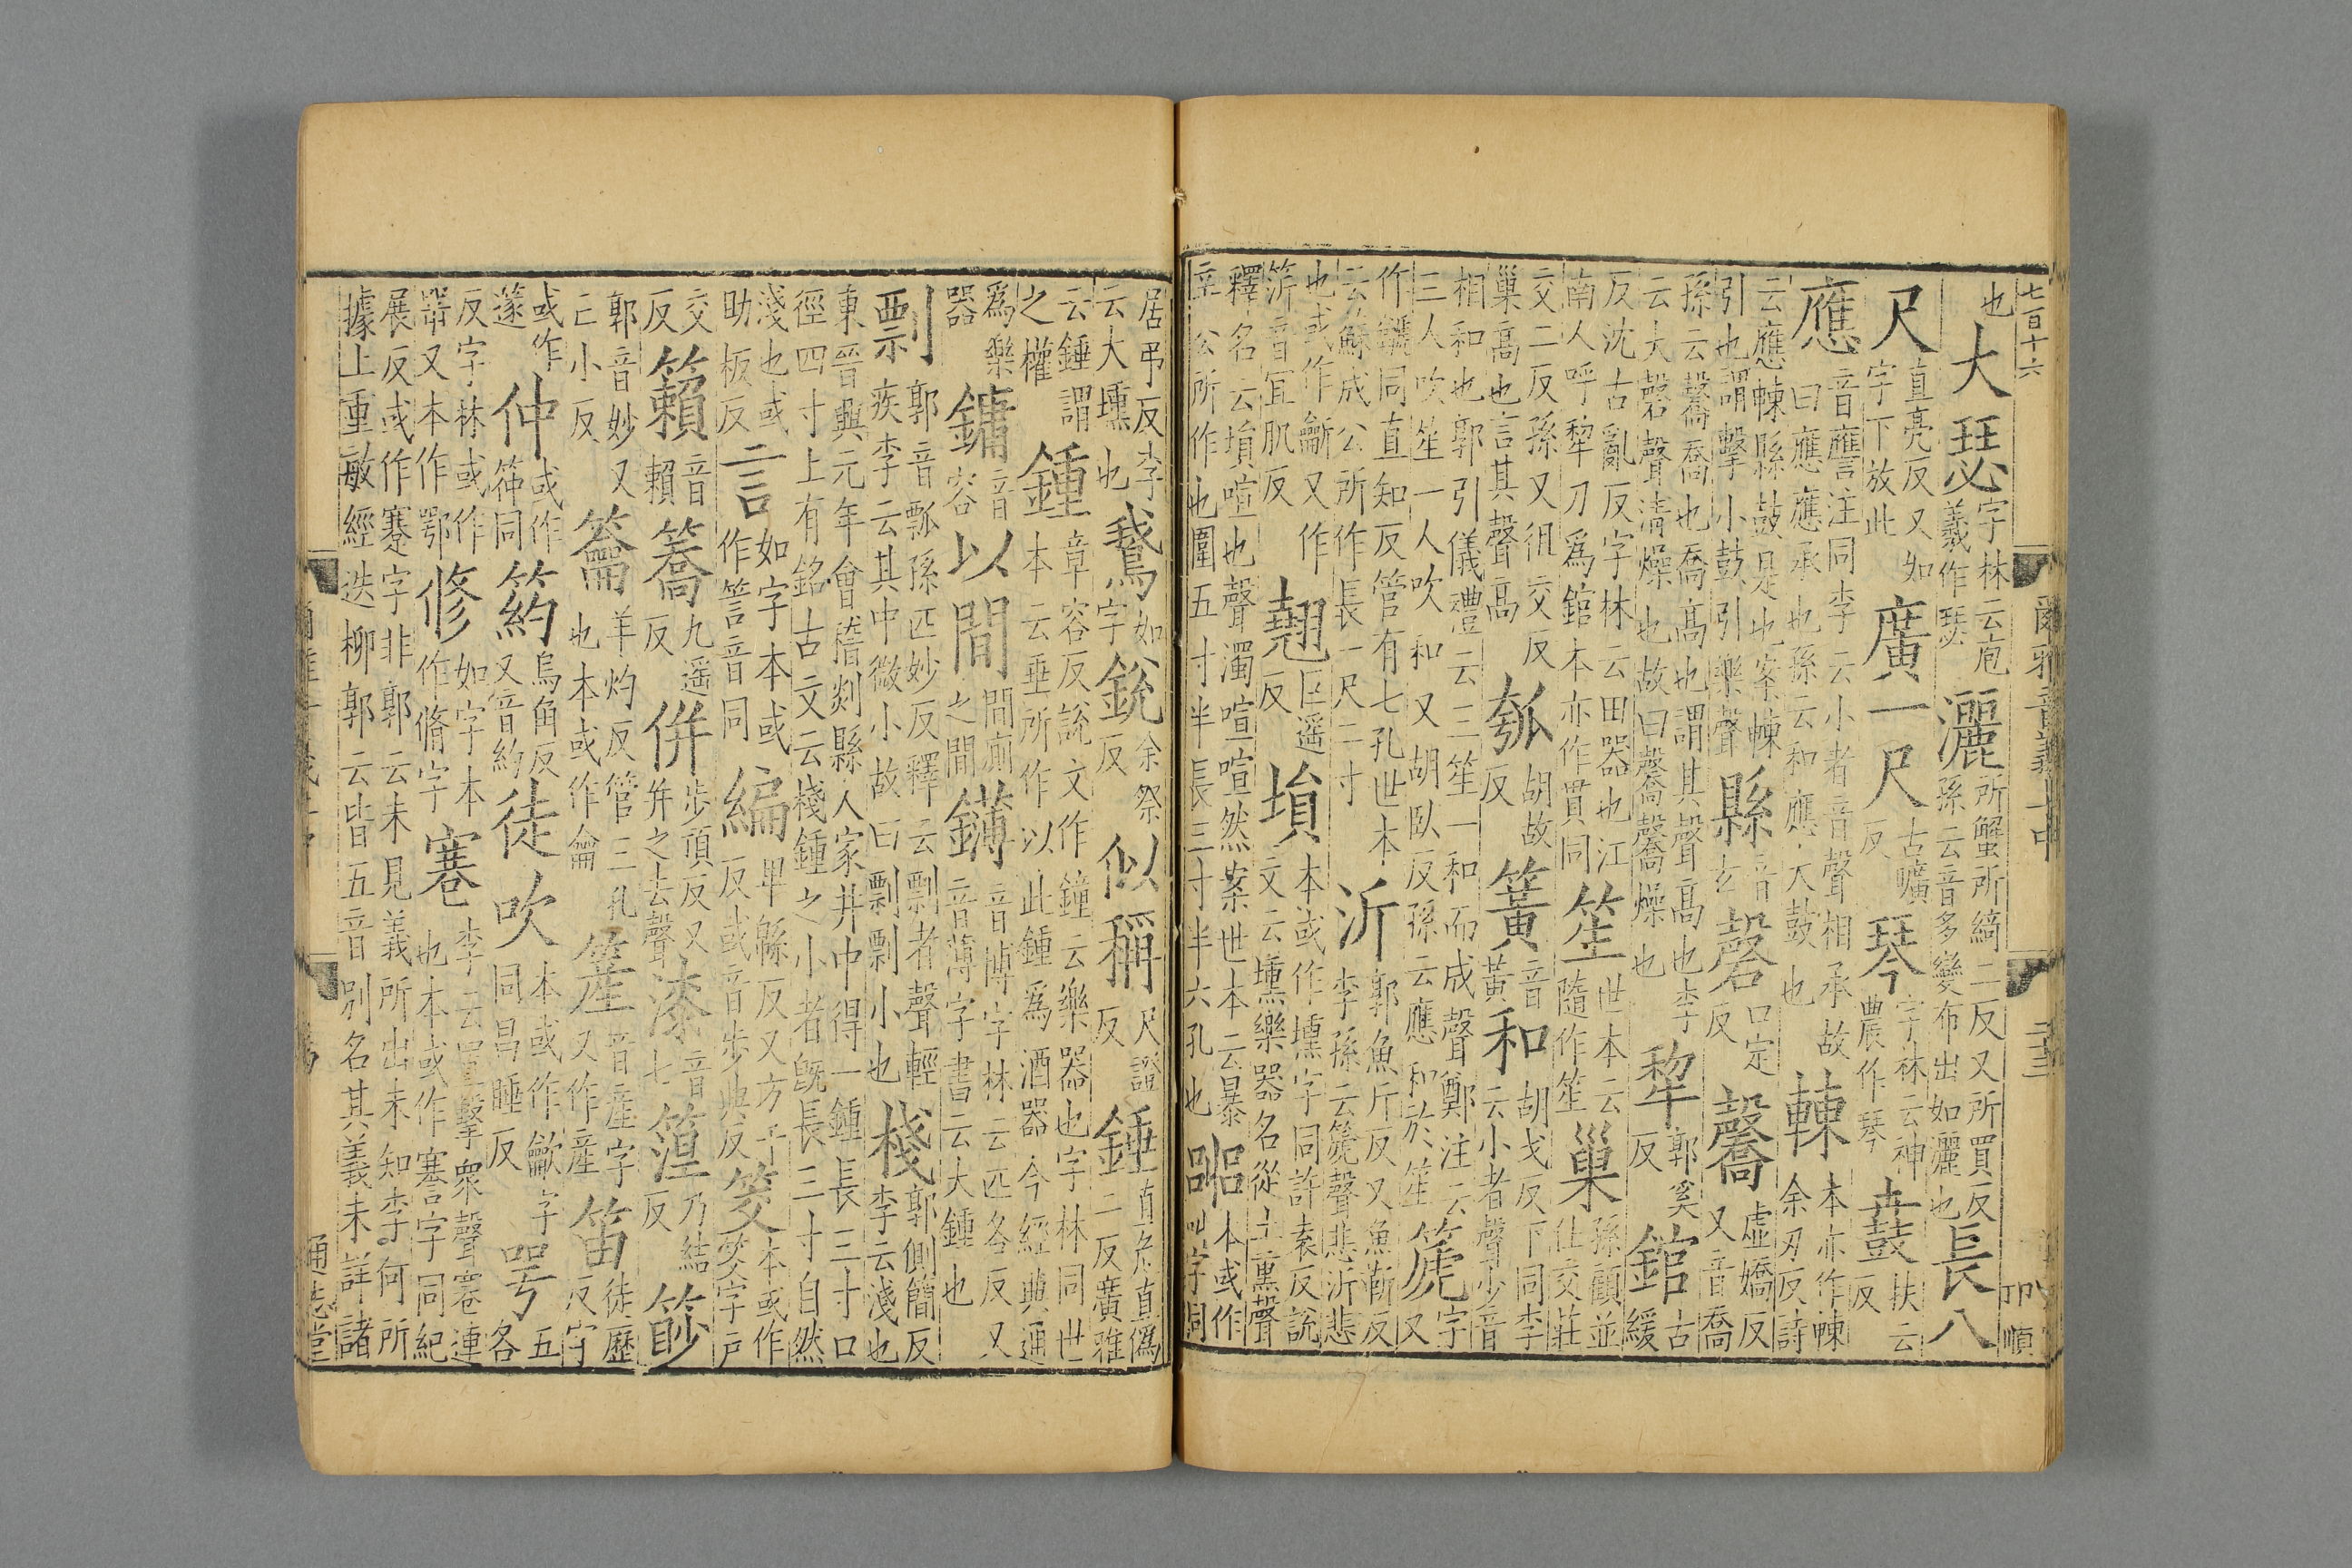 七百十六
爾雅音義中
卬順
也大瑟字林云庖羲作瑟灑所蟹所綺二反又所買反孫云音多變布出如灑也長八
尺直亮反又如字下放此廣一尺古曠反琴字林云神農作琴鼖扶云反
應音譍注同李云小者音聲相承故曰應應承也孫云和應大鼓也朄本亦作㯥余刃反詩
云應㯥縣鼓是也案㯥引也謂擊小鼓引樂聲縣音玄磬口定反毊虛嬌反又音喬
孫云毊喬也喬高也謂其聲高也李云大磬聲清燥也故曰毊毊燥也犂郭奚反錧古緩
反沈古亂反字林云田器也江南人呼犂刀為錧本亦作貫同笙世本云隨作笙巢孫顧並仕交莊
交二反孫又徂交反巢高也言其聲高瓠胡故反簧音黃和胡戈反下同李云小者聲少音
相和也郭引儀禮云三笙一和而成聲鄭注云三人吹笙一人吹和又胡臥反孫云應和於笙篪字又
作䶵同直知反管有七孔世本云蘇成公所作長一尺二寸沂郭魚斤反又魚靳反李孫云篪聲悲沂悲
也或作齗又作䇢音宜肌反翹匹遙反塤本或作壎字同許袁反說文云壎樂器名從土熏聲
釋名云塤喧也聲濁喧喧然案世本云暴辛公所作也圍五寸半長三寸半六孔也嘂本或作叫字同
居弔反李云大壎也鵞如字銳余祭反似稱尺證反錘直危直偽二反廣雅
云錘謂之權鍾章容反說文作鐘云樂器也字林同世本云垂所作以此鍾為酒器今經典通
為樂器鏞音容以間間廁之間鎛音博字林云匹各反又音薄字書云大鍾也
剽郭音瓢孫匹妙反釋云剽者聲輕疾李云其中微小故曰剽剽小也棧郭側簡反李云淺也
東晉興元年會稽剡縣人家井中得一鍾長三寸口徑四寸上有銘古文云棧鍾之小者旣長三寸自然
淺也或助板反言如字本或作䇾音同編畢緜反又方千反或音步典反筊本或作茭字戶
交反籟音賴簥九遙反併步頂反又并之去聲漆音七篞乃結反篎
郭音妙又亡小反籥羊灼反管三孔也本或作龠簅音產字又作產笛徒歷反字
或作篴仲或作筗同箹烏角反又音約徒吹本或作龡字同昌睡反咢五各
反字林或作㗁又本作鄂修如字本作脩字寋李云罝擊衆聲寋連也本或作謇字同紀
展反或作蹇字非郭云未見義所出未知李何所據上重敏經迭柳郭云皆五音別名其義未詳諸
通志堂